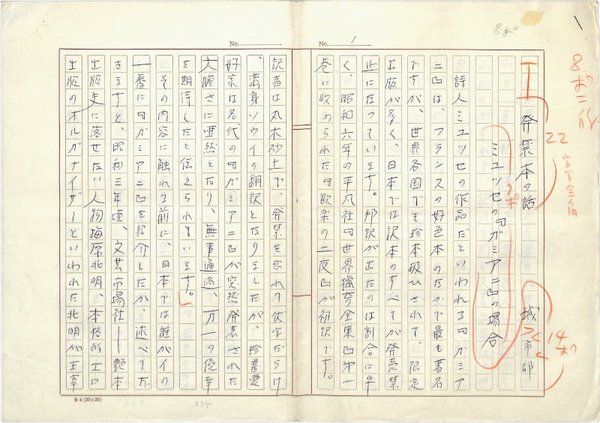 8ポ
8ポ二段
No. 1
No.
22
字アキ
I 発禁本の話
9ポ
ミュッセの『ガミアニ』の場合
城 市郎
14ポ
詩人ミュッセの作品だといわれる『ガミア
ニ』は、フランスの好色本のなかで最も著名
ですが、世界各国でも珍本扱いされて、限定
出版が多く、日本では訳本のすべてが発売禁
止になっています。邦訳が出たのは割合に早
く、昭和六年の平凡社『世界猟奇全集』第一
巻に収められた『歓楽の二夜』が初訳です。
訳者は丸木砂土で、発禁を恐れて伏字だらけ
、満身ソウイの翻訳となりましたが、珍書愛
好家は名代の『ガミアニ』が突然発表された
大胆さに唖然となり、無事通過、万一の僥倖
を期待したと伝えられています。
その内容に触れる前に、日本では誰がイの
一番に『ガミアニ』を紹介したか、述べてお
きますと、昭和三年頃、文芸市場社――艶本
出版史に落せない人物梅原北明、本格的エロ
出版のオルガナイザーといわれた北明が主宰
B4(20×20)